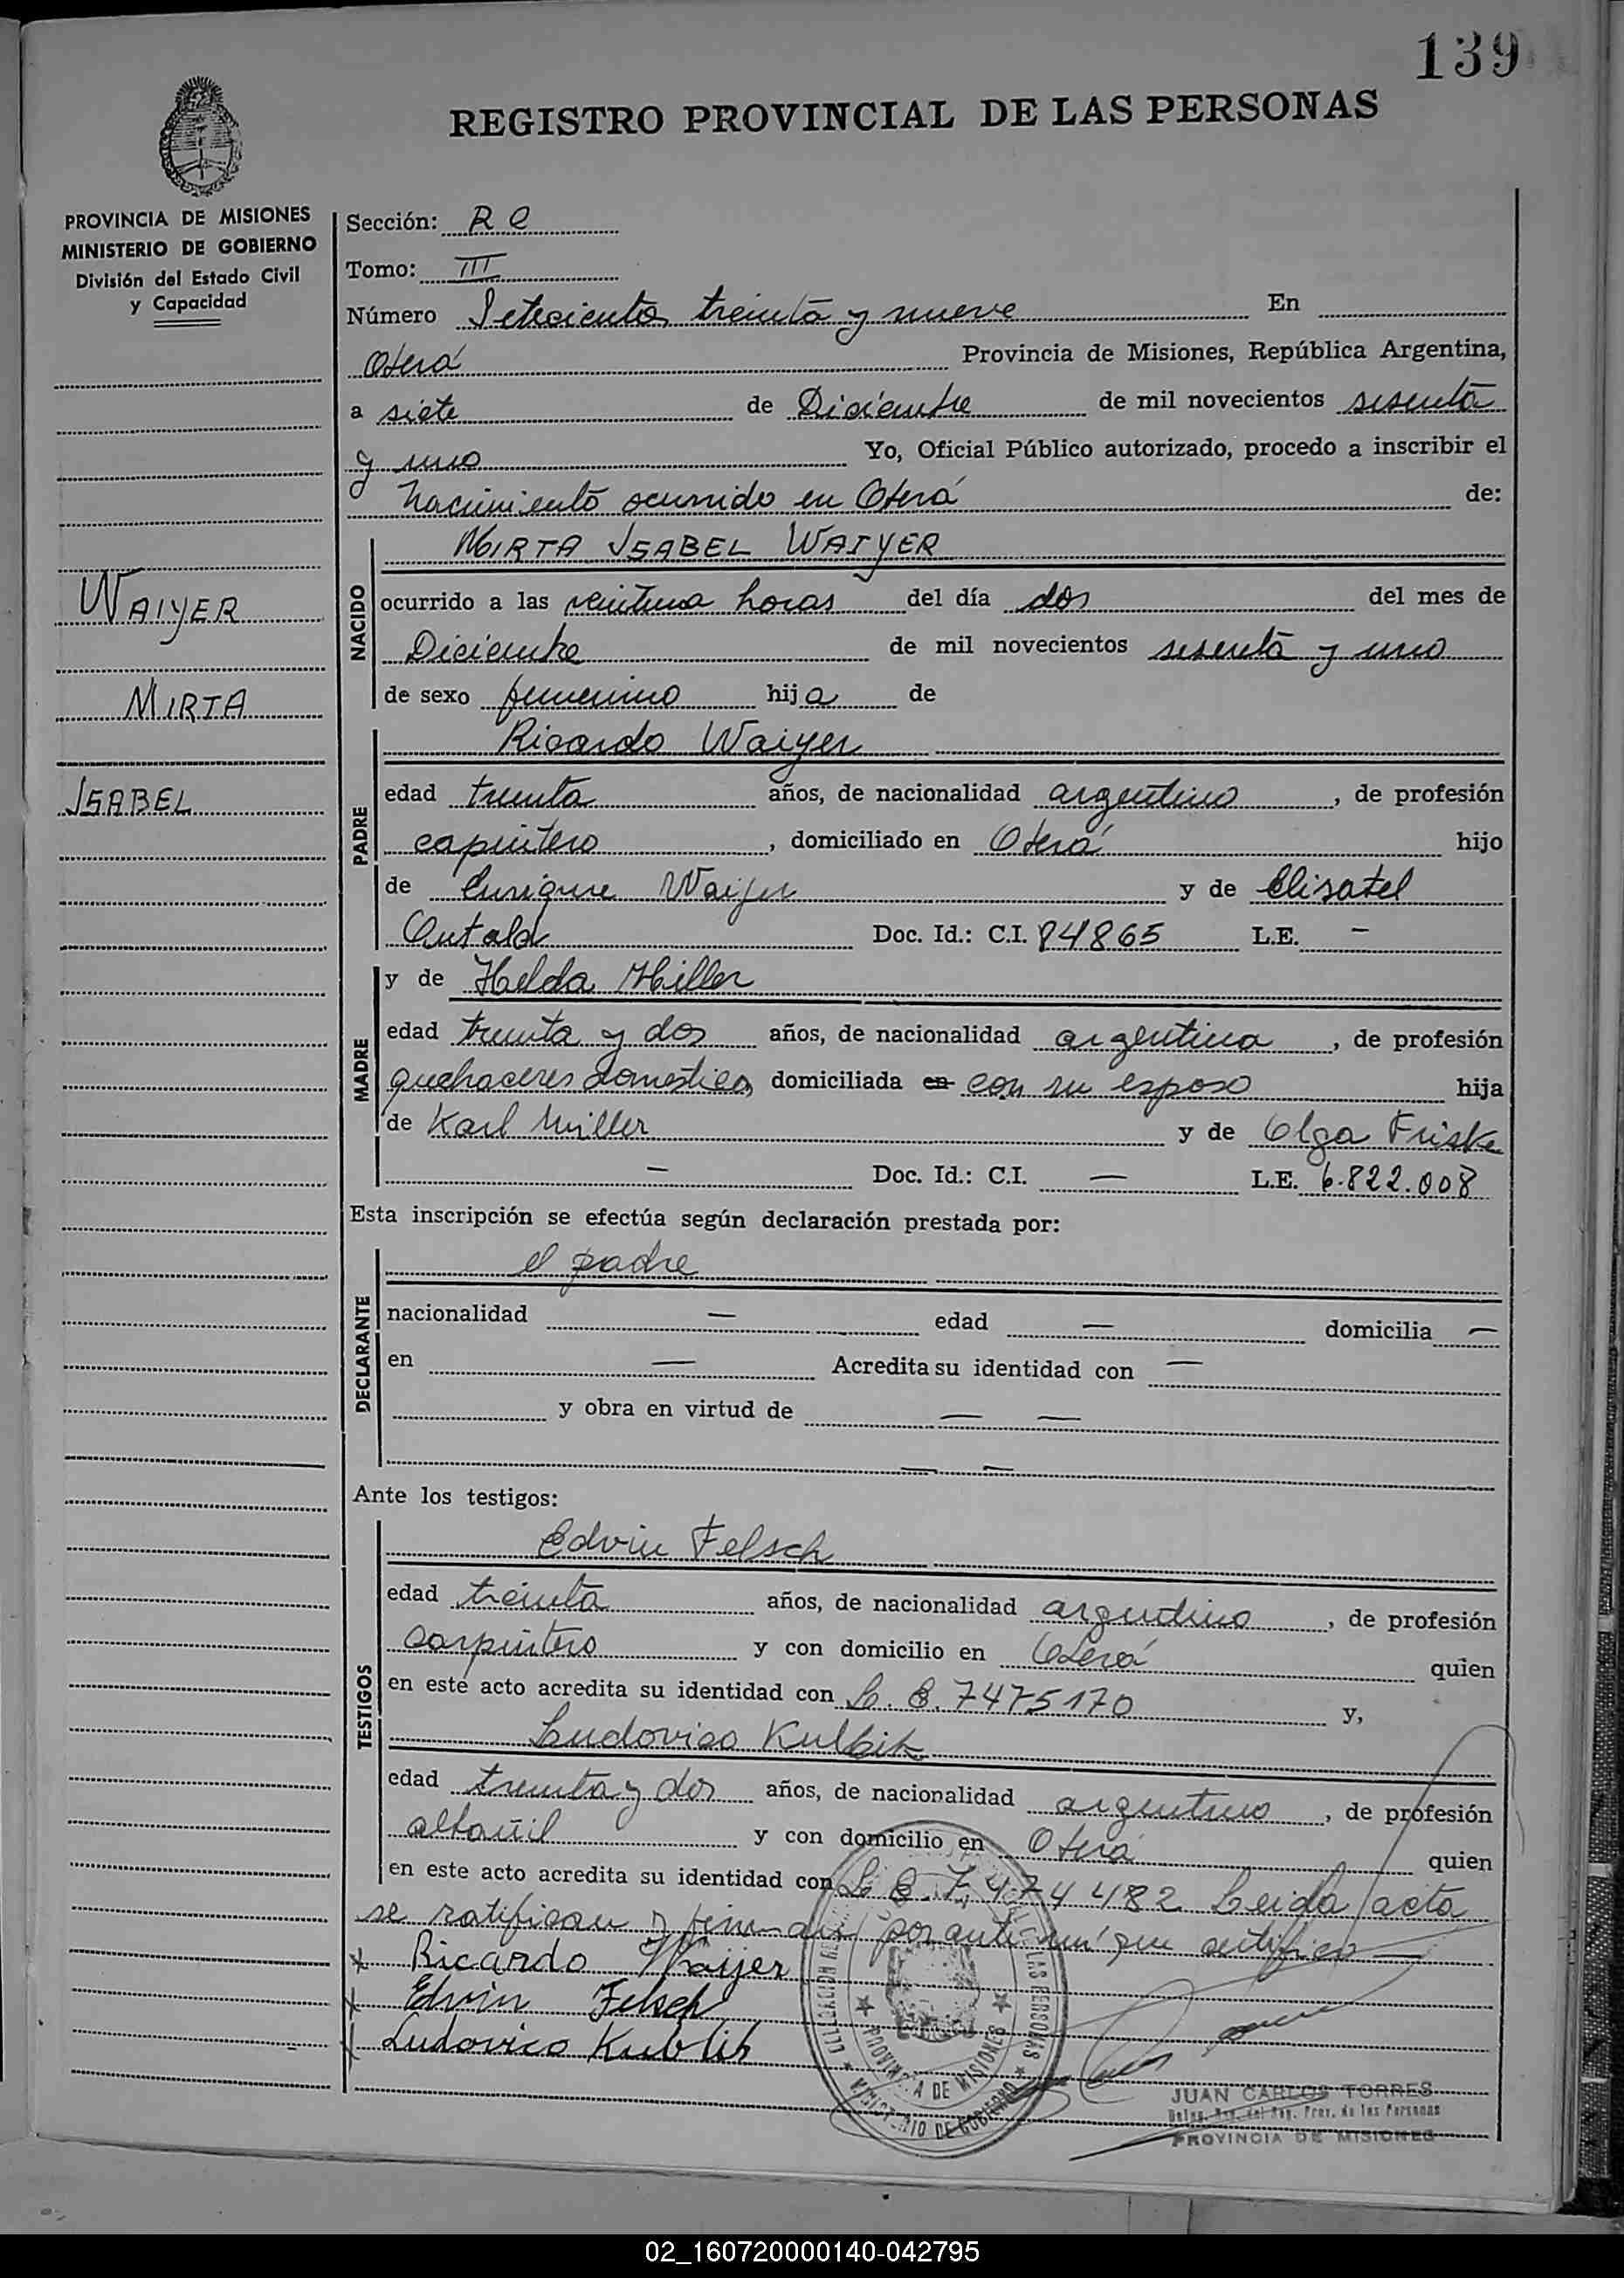 139
REGISTRO PROVINCIAL DE LAS PERSONAS
PROVINCIA DE MISIONES
MINISTERIO DE GOBIERNO
División del Estado Civil
y Capacidad
WAIYER
MIRTA
ISABEL
Sección: R C
Tomo: III
Número Setecientos treinta y nueve En
Oberá Provincia de Misiones, República Argentina,
a siete de Diciembre de mil novecientos sesenta
y uno Yo, Oficial Público autorizado, procedo a inscribir el
Nacimiento ocurrido en Oberá de:
NACIDO
MIRTA ISABEL WAIYER
ocurrido a las veintiuna horas del día dos del mes de
Diciembre de mil novecientos sesenta y uno
de sexo femenino hija de
PADRE
Ricardo Waiyer
edad treinta años, de nacionalidad argentino, de profesión
carpintero, domiciliado en Oberá hijo
de Enrique Waiyer y de Elisabet
Doc. Id.: C.I. 84865 L.E. —
MADRE
y de Helda Miller
edad treinta y dos años, de nacionalidad argentina, de profesión
quehaceres domesticos domiciliada en con su esposo hija
de Karl Miller y de Olga Friske
— Doc. Id.: C.I. — L.E. 6.822.008
Esta inscripción se efectúa según declaración prestada por:
DECLARANTE
el padre
nacionalidad — edad — domicilia —
en — Acredita su identidad con —
y obra en virtud de — —
— —
Ante los testigos:
TESTIGOS
Edvin Felsch
edad treinta años, de nacionalidad argentino, de profesión
carpintero y con domicilio en Oberá quien
en este acto acredita su identidad con L. E. 7475170 y,
Ludovico Kulbik
edad treinta y dos años, de nacionalidad argentino, de profesión
albañil y con domicilio en Oberá quien
en este acto acredita su identidad con L. E. 7.474.482 Leida acta
se ratifican y firman por ante mí que certifico —
x Ricardo Waijer
x Edvin Felsch
x Ludovico Kublik
PROVINCIA DE MISIONES
MINISTERIO DE GOBIERNO
LAS PERSONAS
JUAN CARLOS TORRES
Reg. Prov. de las Personas
PROVINCIA DE MISIONES
02_160720000140-042795